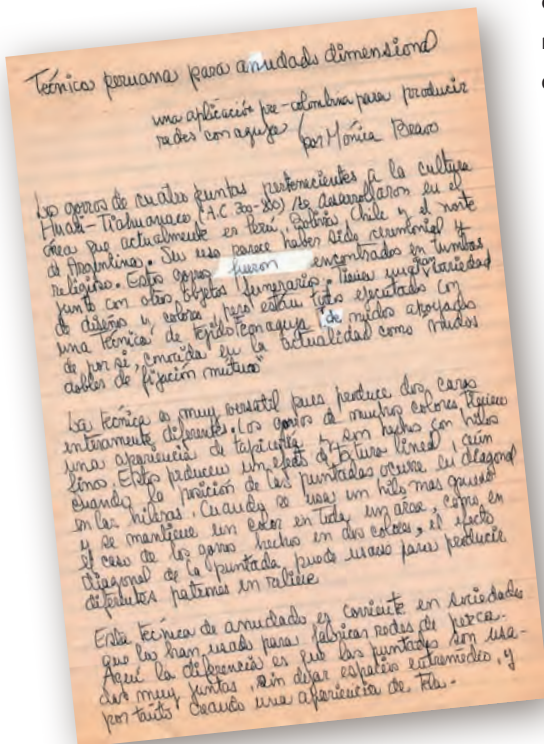 Técnica peruana para anudado dimensional
una aplicación pre-colombina para producir
redes con aguja (por Mónica Bravo
Los gorros de cuatro puntas pertenecientes a la cultura
Huari-Tiahuanaco, (A.C. ) se desarrollaron en el
área que actualmente es Perú, Bolivia, Chile y el norte
de Argentina. Su uso parece haber sido ceremonial y
religioso. Estos gorros fueron encontrados en tumbas
junto con otros objetos funerarios. Tienen una gran variedad
de diseños y colores, pero están todos ejecutados con
una técnica de tejido con aguja de nudos apoyados
de por sí, conocida en la actualidad como nudos
dobles de fijación mutua"
La técnica es muy versátil pues produce dos caras
enteramente diferentes. Los gorros de muchos colores, tienen
una apariencia de tapicería y son hechos con hilos
finos. Estos producen un efecto de textura lineal, aún
cuando la posición de las puntadas ocurre en diagonal
en las hileras. Cuando se usa un hilo mas grueso
y se mantiene un color en toda un area, como en
el caso de los gorros hechos en dos colores, el efecto
diagonal de la puntada puede usarse para producir
diferentes patrones en relieve
Esta técnica de anudado es corriente en sociedades
que la han usado para fabricar redes de pesca.
Aquí la diferencia es que las puntadas son usa-
das muy juntas, sin dejar espacios entremedios, y
por tanto creando una apariencia de tela.